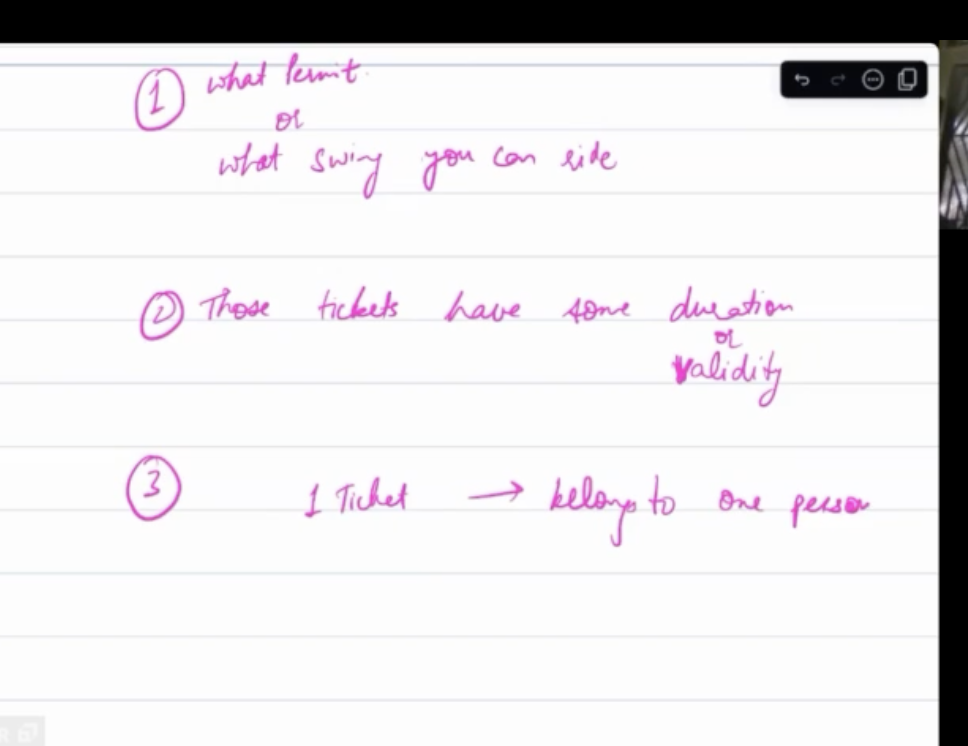 ① what Permit.
or
what swing you can ride
② Those tickets have some duration
or
Validity
③ 1 Ticket → belongs to one person
R